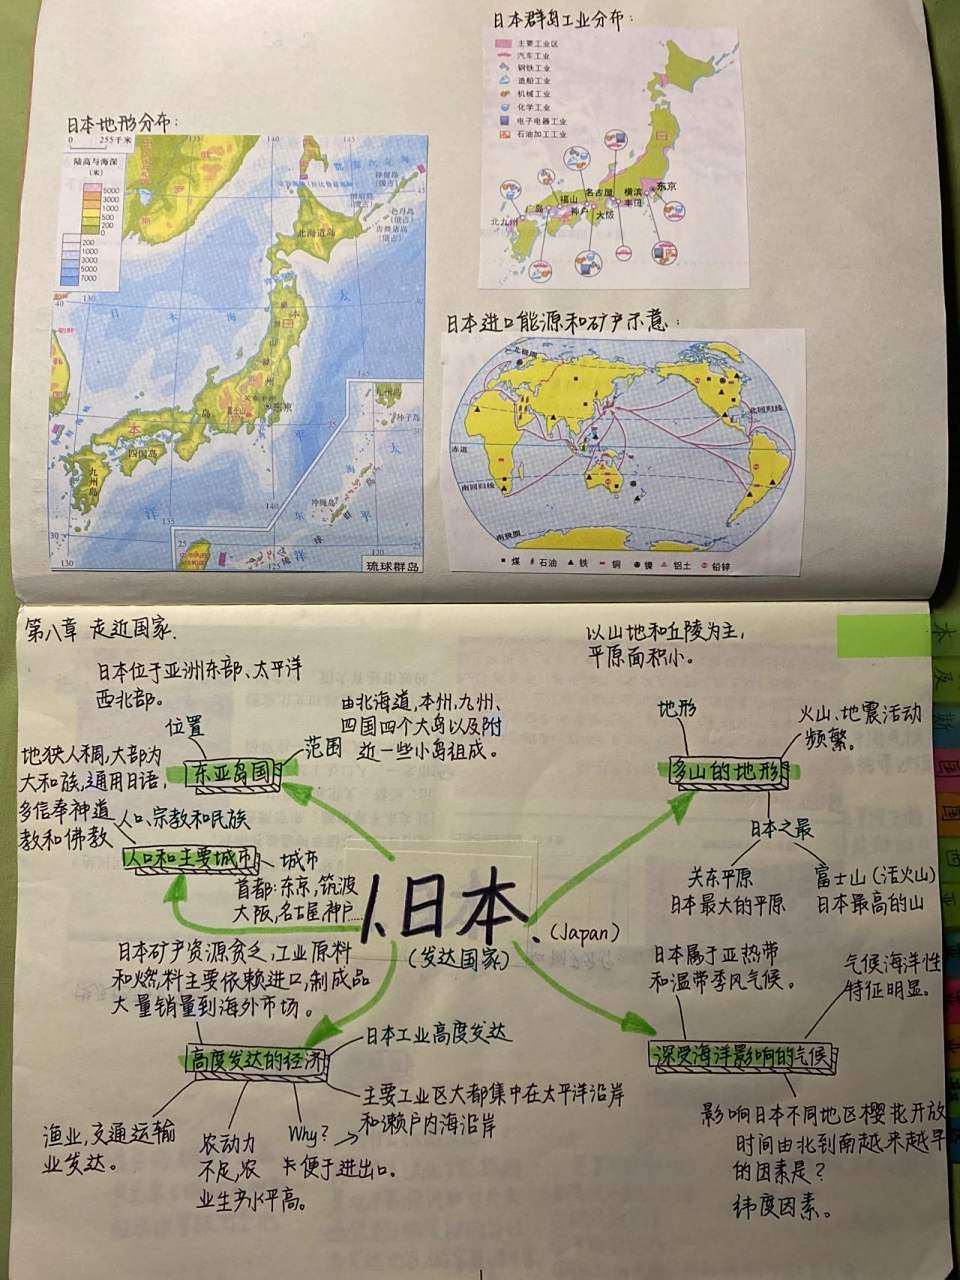 日本群岛工业分布：
主要工业区
汽车工业
钢铁工业
造船工业
机械工业
化学工业
电子电器工业
石油加工工业
日
本
东京
名古屋
横滨
丰田
福山
神户
大阪
广岛
北九州
日本地形分布：
0 255千米
陆高与海深
(米)
5000
3000
1000
500
200
0
200
1000
3000
5000
7000
135
140
145
45
北海道岛
色丹岛
(俄占)
齿舞诸岛
(俄占)
130
日 本 海
太
平
洋
本
州
岛
日
本
富士山
东京
四国岛
九州岛
九州岛
种子岛
冲绳岛
东
海
太
平
洋
琉
球
群
岛
30
130
135
140
145
25
125
130
琉球群岛
日本进口能源和矿产示意：
北极圈
北回归线
赤道
南回归线
南极圈
煤 石油 铁 铜 镍 铝土 铅锌
第八章 走近国家.
日本位于亚洲东部、太平洋
西北部。
位置
由北海道,本州,九州、
四国四个大岛以及附
近一些小岛组成。
范围
东亚岛国
地狭人稠,大部为
大和族,通用日语,
多信奉神道
教和佛教
人口、宗教和民族
人口和主要城市
城市
首都:东京,筑波
大阪,名古屋,神户......
以山地和丘陵为主，
平原面积小。
地形
火山、地震活动
频繁。
多山的地形
日本之最
关东平原
日本最大的平原
富士山(活火山)
日本最高的山
1.日本.
(Japan)
(发达国家)
日本矿产资源贫乏,工业原料
和燃料主要依赖进口,制成品
大量销量到海外市场。
高度发达的经济
日本工业高度发达
主要工业区大都集中在太平洋沿岸
和濑户内海沿岸
Why?
便于进出口。
渔业,交通运输
业发达。
农动力
不足,农
业生产水平高。
日本属于亚热带
和温带季风气候。
气候海洋性
特征明显。
深受海洋影响的气候
影响日本不同地区樱花开放
时间由北到南越来越早
的因素是？
纬度因素。